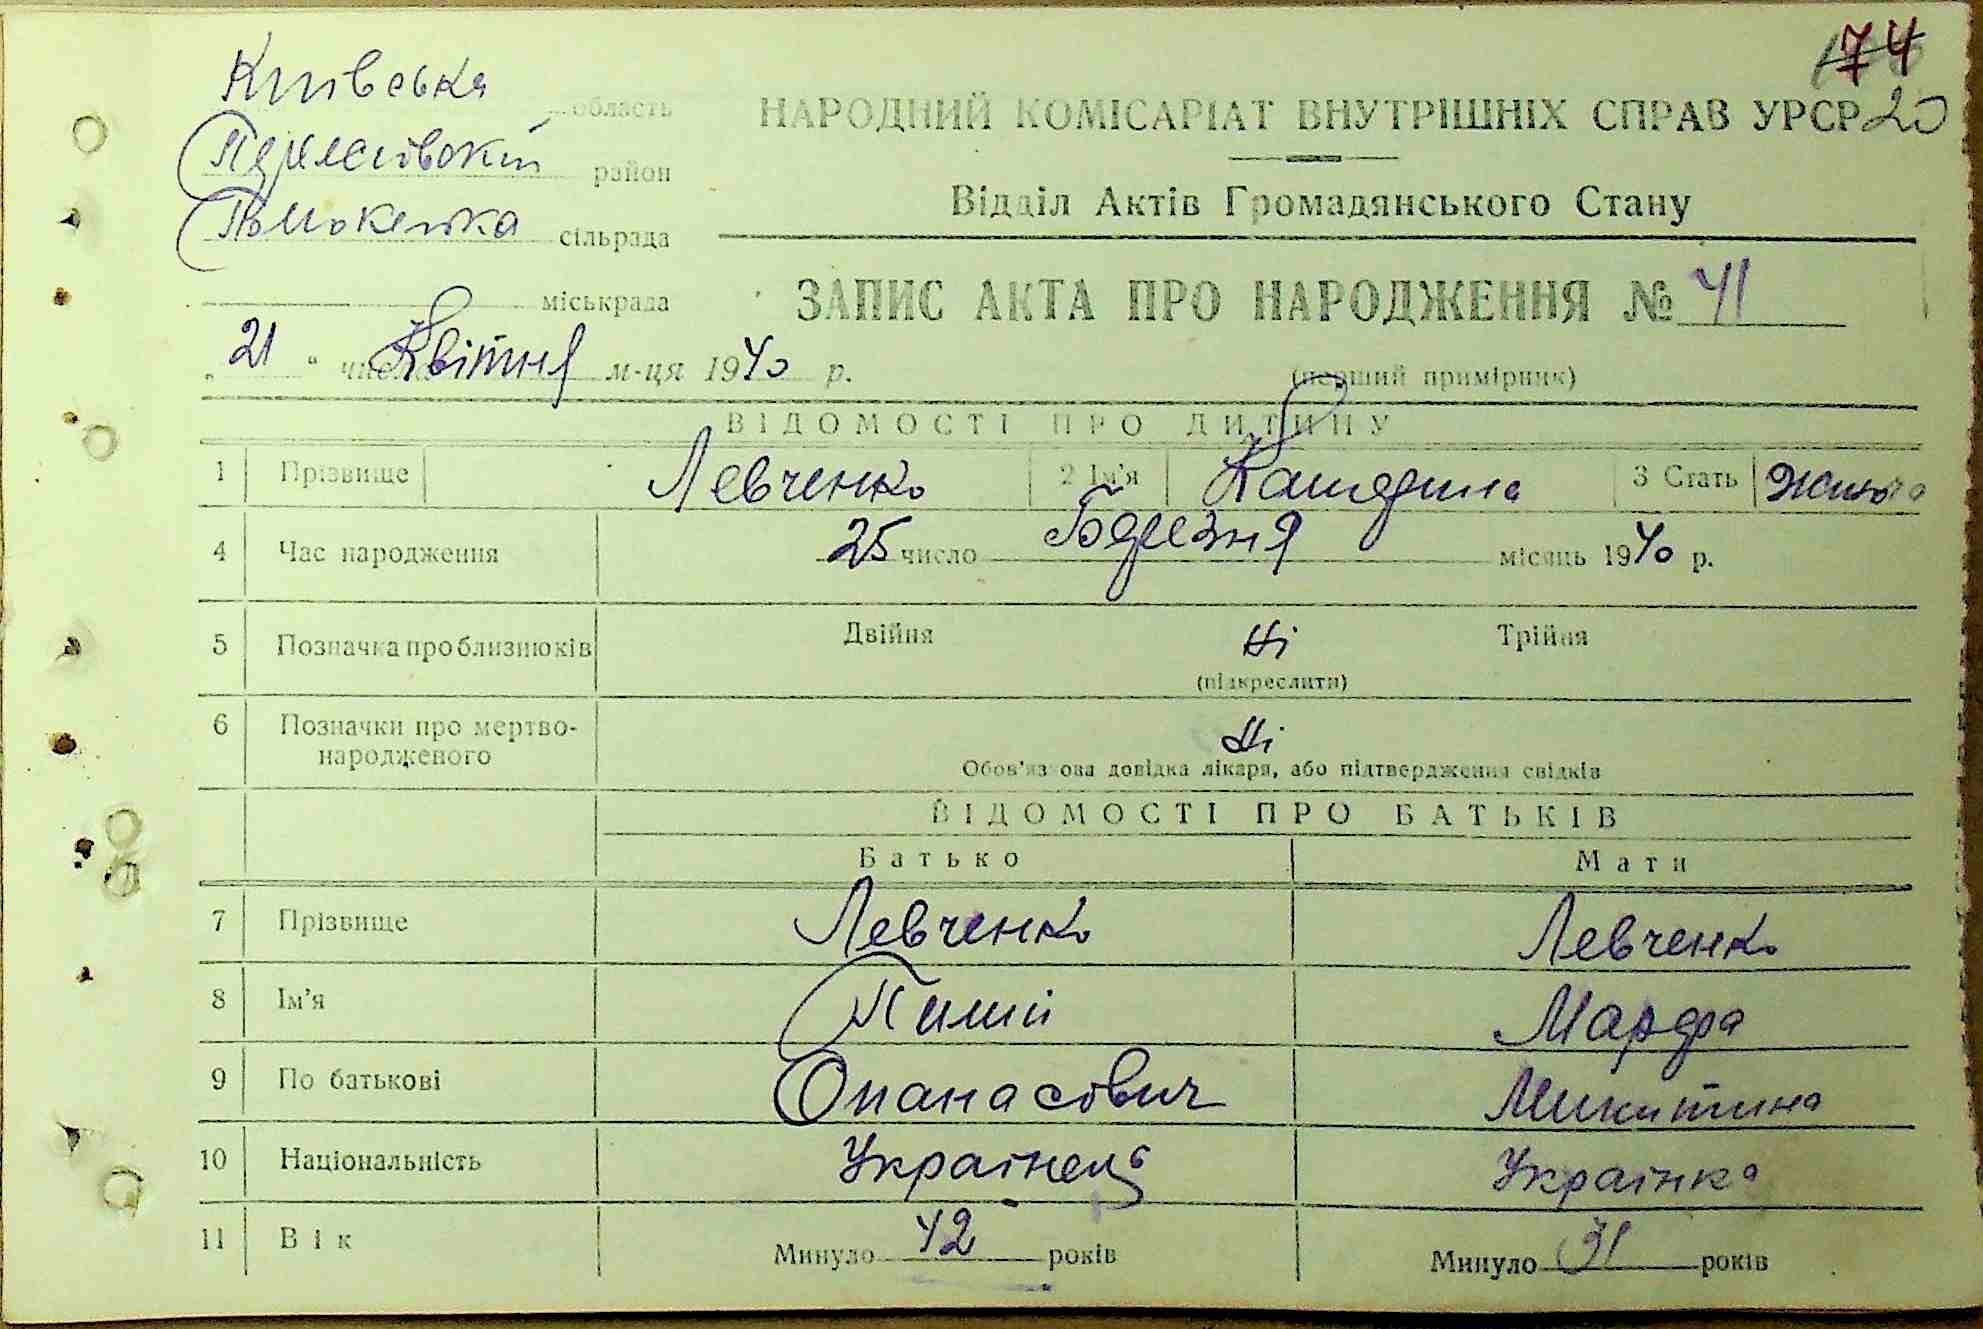 74
20
Київська область
район
сільрада
міськрада
НАРОДНИЙ КОМІСАРІАТ ВНУТРІШНІХ СПРАВ УРСР
Відділ Актів Громадянського Стану
ЗАПИС АКТА ПРО НАРОДЖЕННЯ № 41
„ 21 “ числа Квітня м-ця 1940 р.
(перший примірник)
ВІДОМОСТІ ПРО ДИТИНУ
1 Прізвище Левченко 2 Ім'я 3 Стать
4 Час народження 25 число Березня місяць 1940 р.
5 Позначка про близнюків Двійня Ні Трійня
(підкреслити)
6 Позначки про мертво-
народженого Ні
Обов'язкова довідка лікаря, або підтвердження свідків
ВІДОМОСТІ ПРО БАТЬКІВ
Батько Мати
7 Прізвище Левченко Левченко
8 Ім'я Пилип Марфа
9 По батькові Опанасович Микитина
10 Національність Українець Українка
11 Вік Минуло 42 років Минуло 31 років